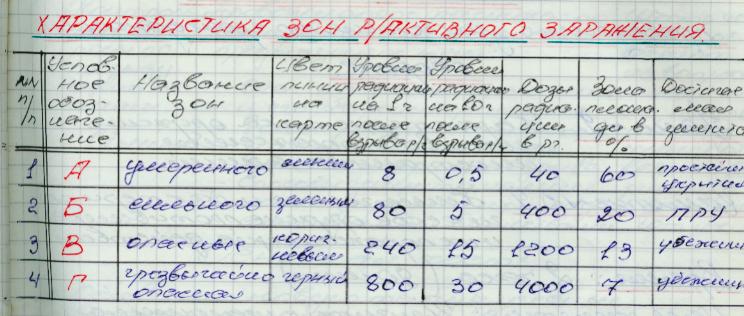 ХАРАКТЕРИСТИКА ЗОН Р/АКТИВНОГО ЗАРАЖЕНИЯ.
NN п/п Услов- ное обоз- наче- ние Название зон Цвет линии на карте Уровни радиации на 1ч после взрыва Уровни радиации на 10ч после взрыва Дозы радиа- ции в рг. Зона площа- ди в %
1 А умеренного синий 8 0,5 40 60 простейш укрытия
2 Б сильного зеленый 80 5 400 20 ПРУ
3 В опасные корич- невый 240 15 1200 13 убежищ
4 Г чрезвычайно опасная черный 800 30 4000 7 убежищ